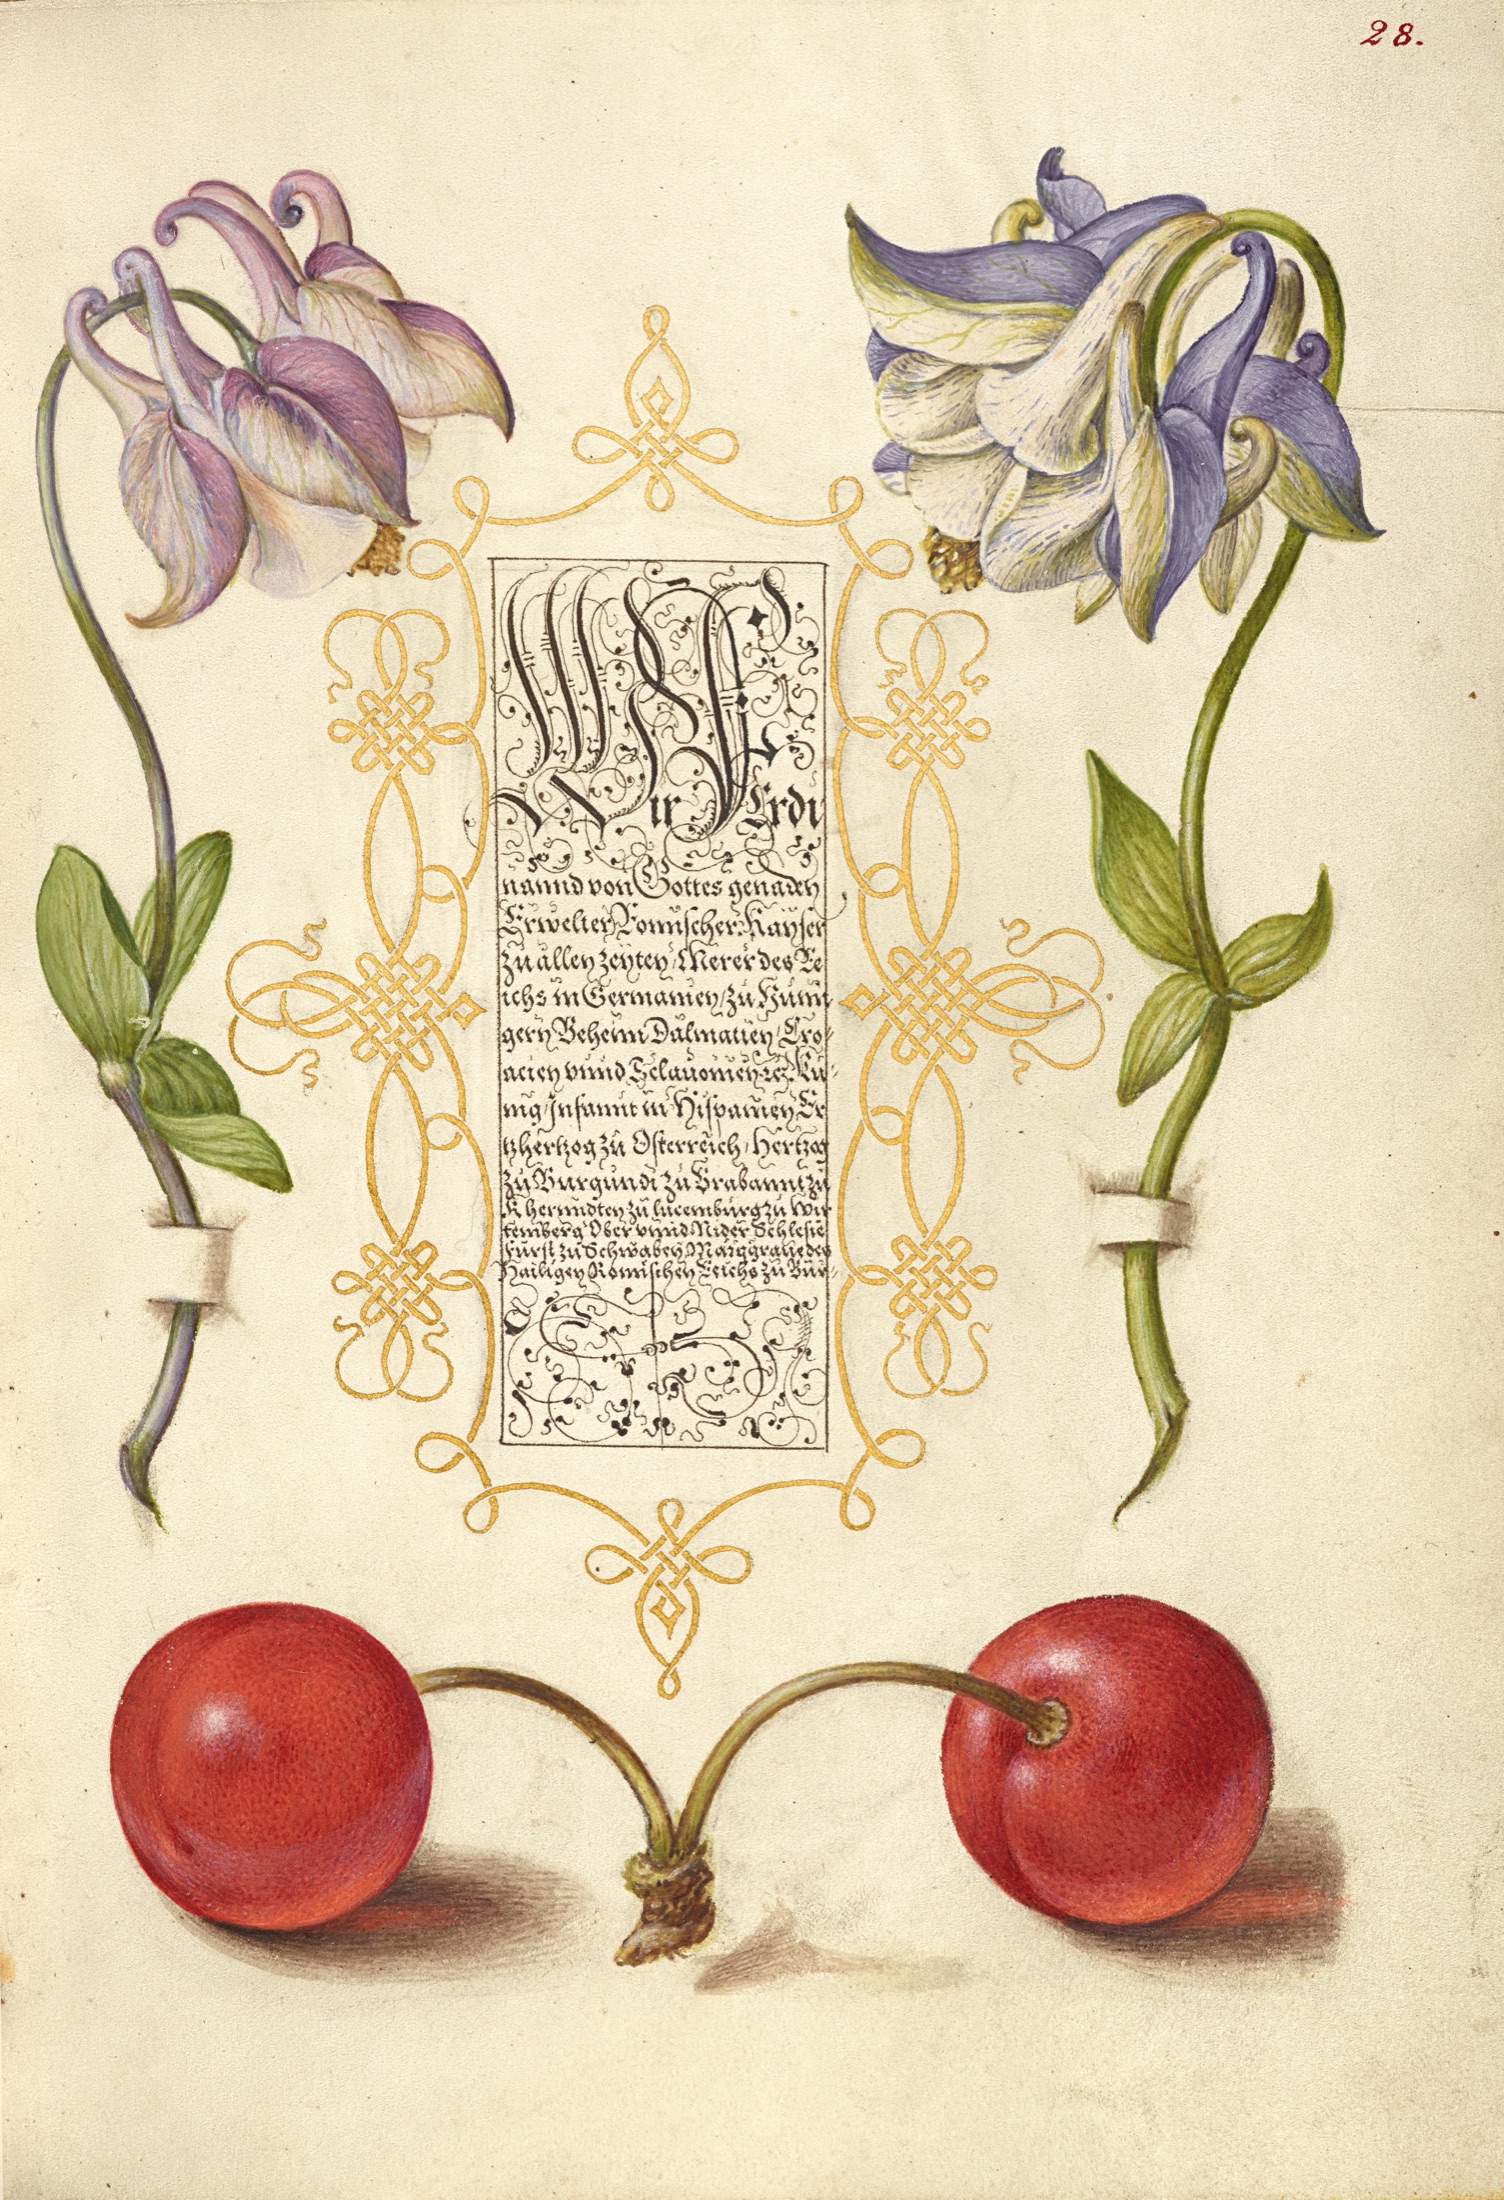 28.
Wir Ferdi
nannd von Gottes genaden
Erwelter Romischer Kayser
zu allen zeyten, Merer des Re
ichs in Germanien, zu Hunn
gern Beheim Dalmatien, Cro-
acien vnnd Sclauonien, &c. Ku-
nig, Infannt in Hispanien, Er
tzhertzog zu Osterreich, Hertzog
zu Burgundi zu Brabannt zu
Kherndten zu lucemburg zu Wir
temberg Ober vnnd Nider Schlesie
Furst zu Schwaben Marggraue des
Hailigen Romischen Reichs zu Bur-